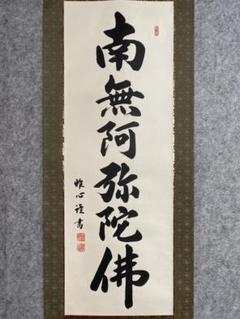 南無阿弥陀佛
惟心謹書